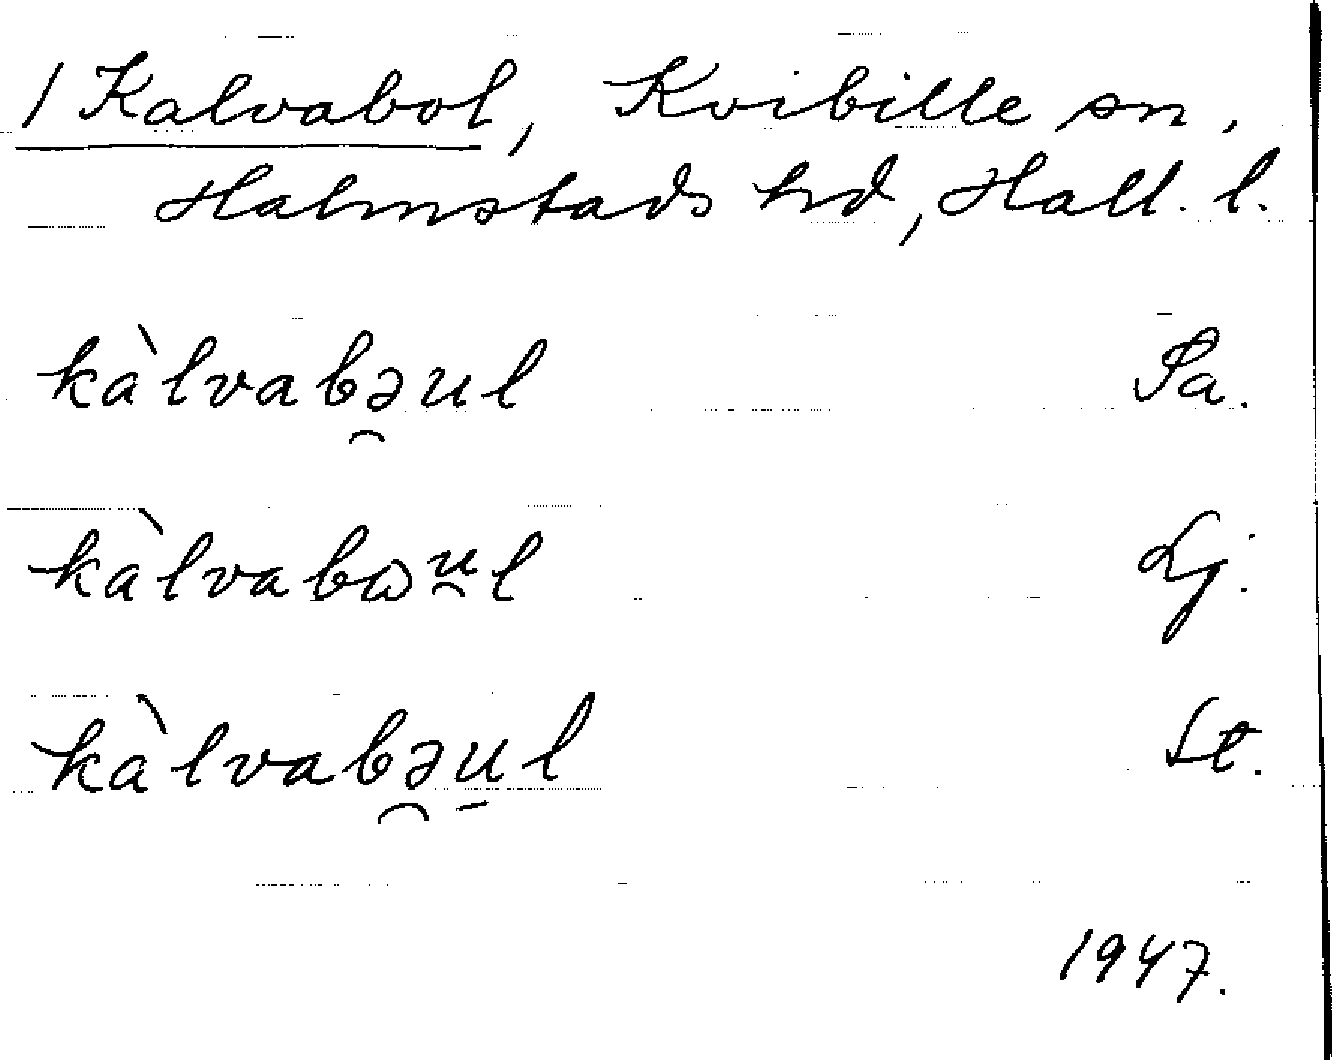 1 Kalvabol, Kvibille sn.
Halmstads hd, Hall. l.
kàlvabə̯ul Sa.
kàlvabωu̯l Lj.
kàlvabə̯u̱l St.
1947.